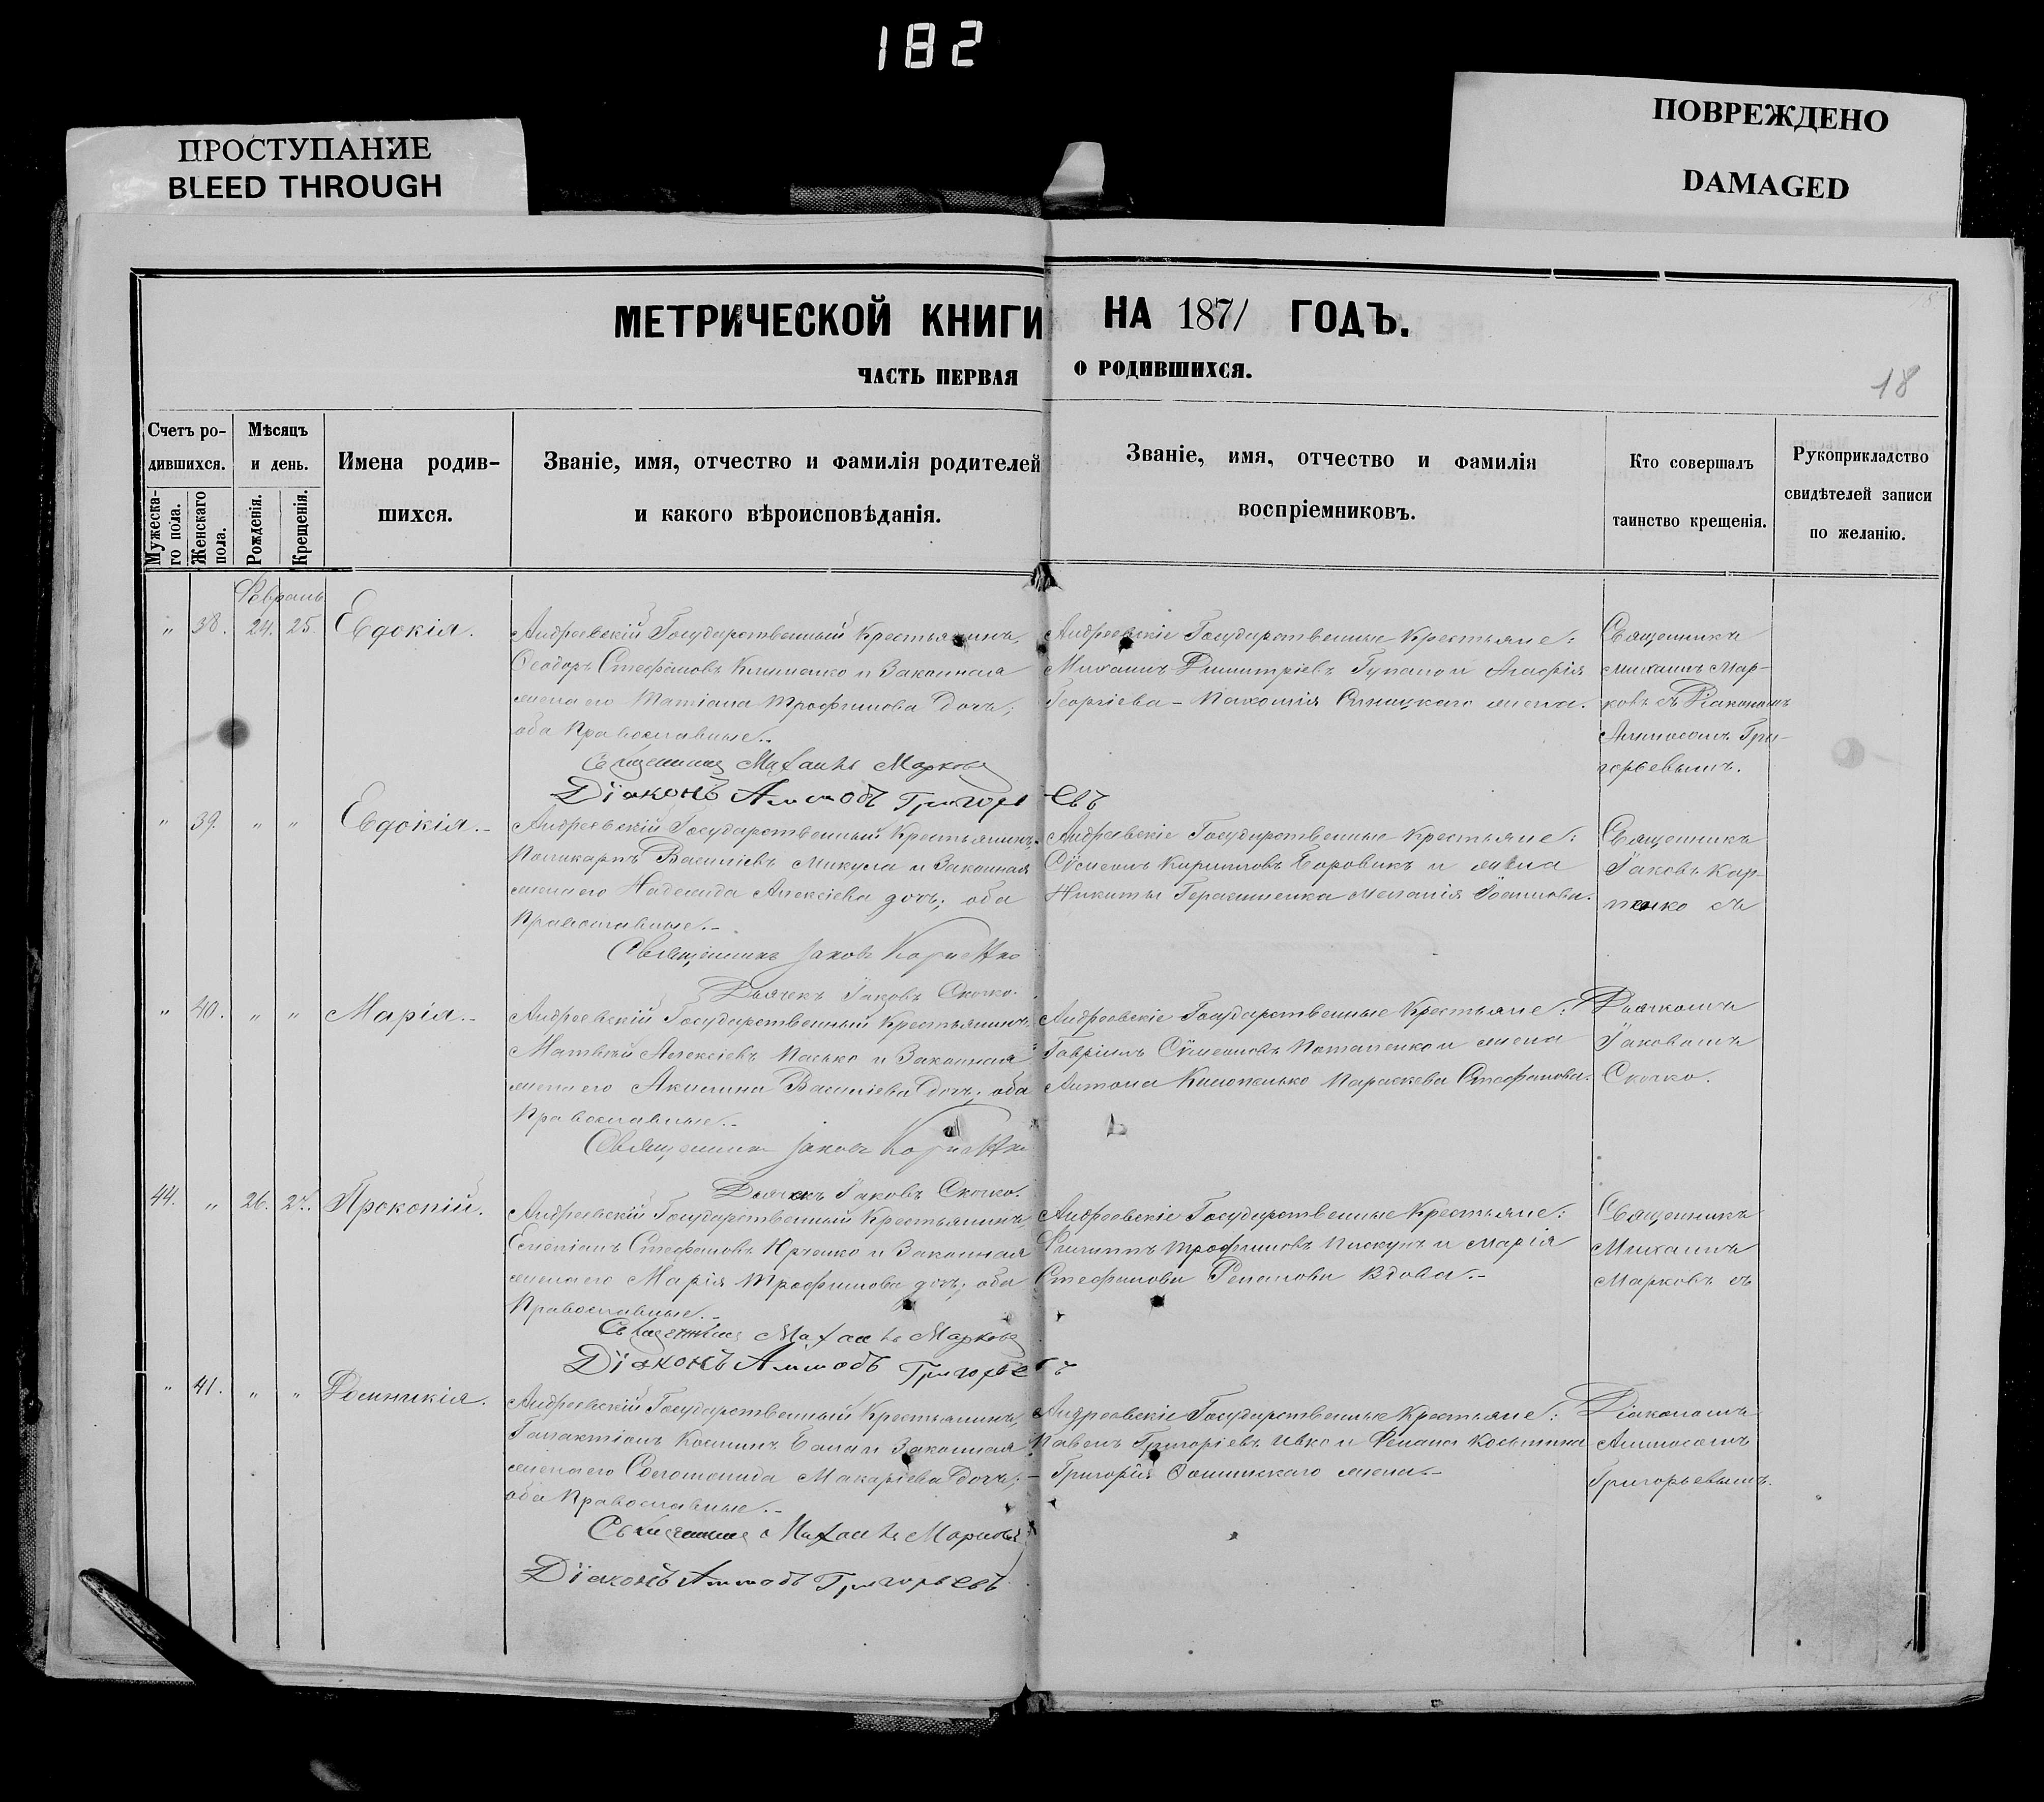 182
ПРОСТУПАНИЕ
BLEED THROUGH
ПОВРЕЖДЕНО
DAMAGED
МЕТРИЧЕСКОЙ КНИГИ НА 1871 ГОДЪ.
ЧАСТЬ ПЕРВАЯ О РОДИВШИХСЯ.
18
Счетъ ро-
дившихся.
Мужеска-
го пола.
Женскаго
пола.
Мѣсяцъ
и день.
Рожденія.
Крещенія.
Имена родив-
шихся.
Званіе, имя, отчество и фамилія родителей
и какого вѣроисповѣданія.
Званіе, имя, отчество и фамилія
воспріемниковъ.
Кто совершалъ
таинство крещенія.
Рукоприкладство
свидѣтелей записи
по желанію.
Февраль
" 38. 24. 25. Евдокія.
Андреевскій Государственный Крестьянинъ,
Ѳеодоръ Стефановъ Клименко и Законная
жена его Татіана Трофимова дочь;
оба Православные.
Священникъ Михаилъ Марковъ
Діаконъ Аммосъ Григорьевъ
Андреевскіе Государственные Крестьяне:
Михаилъ Димитріевъ и Агафія
Георгіева - Пахомія жена.
Священникъ
Михаилъ Мар-
ковъ съ Діакономъ
Аммосомъ Гри-
горьевымъ.
" 39. " " Евдокія.
Андреевскій Государственный Крестьянинъ,
Поликарпъ Василіевъ Микула и Законная
жена его Надежда Алексіева дочь; оба
Православные.
Священникъ Іаковъ Карпенко
Дьячекъ Іаковъ Скочко.
Андреевскіе Государственные Крестьяне:
Сѵмеонъ Кирилловъ Боровикъ и жена
Никиты Герасименка Меланія
Священникъ
Іаковъ Кар-
пенко съ
" 40. " " Марія.
Андреевскій Государственный Крестьянинъ,
Матвѣй Алексіевъ Пасько и Законная
жена его Акилина Василіева дочь; оба
Православные.
Священникъ Іаковъ Карпенко
Дьячекъ Іаковъ Скочко.
Андреевскіе Государственные Крестьяне:
Гавріилъ Сѵмеоновъ Потапенко и жена
Антона Параскева Стефанова.
Дьячкомъ
Іаковомъ
Скочко.
44. " 26. 27. Прокопій.
Андреевскій Государственный Крестьянинъ,
Стефановъ Юрченко и Законная
жена его Марія Трофимова дочь; оба
Православные.
Священникъ Михаилъ Марковъ
Діаконъ Аммосъ Григорьевъ
Андреевскіе Государственные Крестьяне:
Филиппъ Трофимовъ Пискунъ и Марія
Стефанова вдова.
Священникъ
Михаилъ
Марковъ съ
" 41. " " Домникія.
Андреевскій Государственный Крестьянинъ,
Галактіонъ Козминъ и Законная
жена его Соломонида Макаріева дочь;
оба Православные.
Священникъ Михаилъ Марковъ
Діаконъ Аммосъ Григорьевъ
Андреевскіе Государственные Крестьяне:
Павелъ Григоріевъ Ивко и
Григорія жена.
Діакономъ
Аммосомъ
Григорьевымъ.